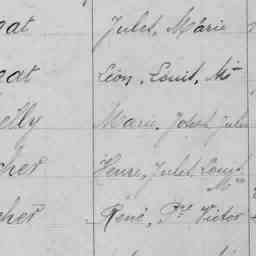 gat Jules, Marie
gat Léon, Louis, M
eilly Marie, Joseph, Jules
cher Henri, Jules, Louis,
M
cher René, Victor